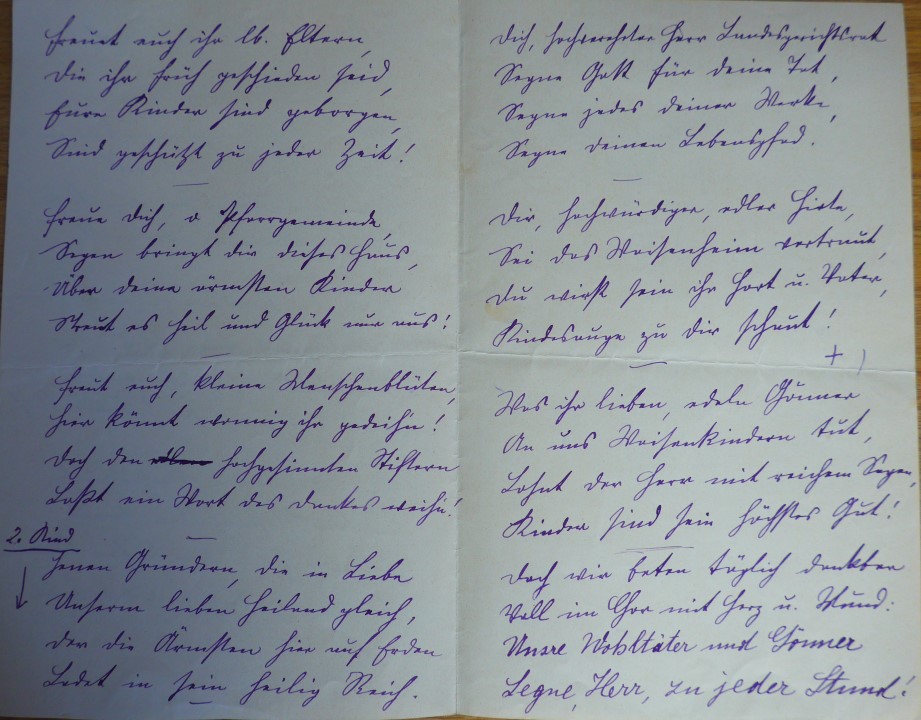 Freuet euch ihr lb. Eltern,
Die ihr früh geschieden seid,
Eure Kinder sind geborgen,
Sind geschützt zu jeder Zeit!
Freue dich, o Pfarrgemeinde,
Segen bringt dir dieses Haus,
Über deine ärmsten Kinder
Streut es Heil und Glück nur aus!
Freut euch, kleine Menschenblüten,
Hier könnt wonnig ihr gedeihn!
Doch den hochgesinnten Stiftern
Laßt ein Wort des Dankes weihn!
2. Kind
Jenen Gründern, die in Liebe
Unserm lieben Heiland gleich,
Der die Ärmsten hier auf Erden
Ladet in sein heilig Reich.
Dich, hochverehrter Herr Landesgerichtsrat
Segne Gott für deine Tat,
Segne jedes deiner Werke,
Segne deinen Lebenspfad.
Dir, hochwürdiger, edler Hirte,
Sei das Waisenheim vertraut,
Du wirst sein ihr Hort u. Vater,
Kindesauge zu dir schaut!
+ )
Was ihr lieben, edeln Gönner
An uns Waisenkindern tut,
Lohnt der Herr mit reichem Segen,
Kinder sind sein höchstes Gut!
Doch wir beten täglich dankbar
Voll im Chor mit Herz u. Mund:
Unsre Wohltäter und Gönner
Segne, Herr, zu jeder Stund!